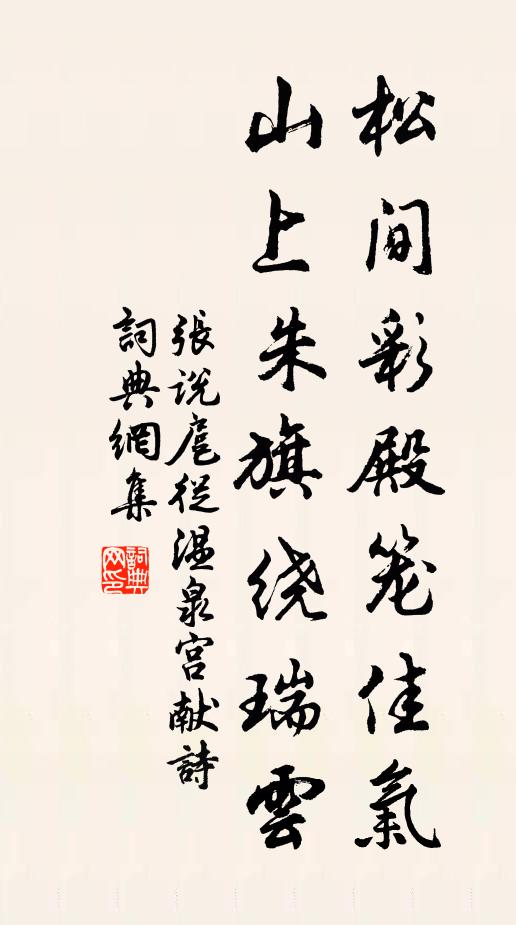 松间彩殿笼佳氣
山上朱旗绕瑞雲
張说扈從温泉宫献詩
詞典網集
詞典网印